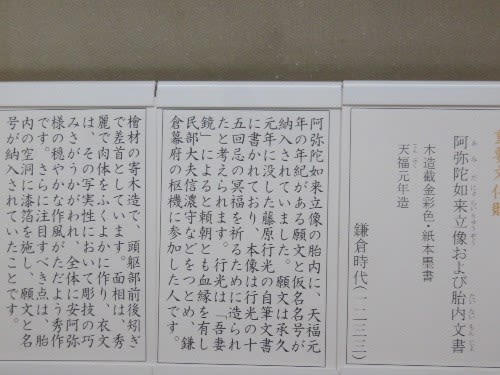 重要文化財
阿弥陀如来立像および胎内文書
木造截金彩色・紙本墨書
天福元年造
鎌倉時代(一二三三)
阿弥陀如来立像の胎内に、天福元
年の年紀がある願文と仮名名号が
納入されていました。願文は承久
元年に没した藤原行光の自筆文書
に書かれており、本像は行光の十
五回忌の冥福を祈るために造られ
たと考えられます。行光は「吾妻
鏡」によると頼朝とも血縁を有し
民部大夫信濃守などをつとめ、鎌
倉幕府の枢機に参加した人です。
檜材の寄木造で、頭躯部前後矧ぎ
で差首としています。面相は、秀
麗で肉体をふくよかに作り、衣文
は、その写実性において彫技の巧
みさがうかがわれ、全体に安阿弥
様の穏やかな作風がただよう秀作
です。さらに注目すべき点は、胎
内の空洞に漆箔を施し、願文と名
号が納入されていたことです。